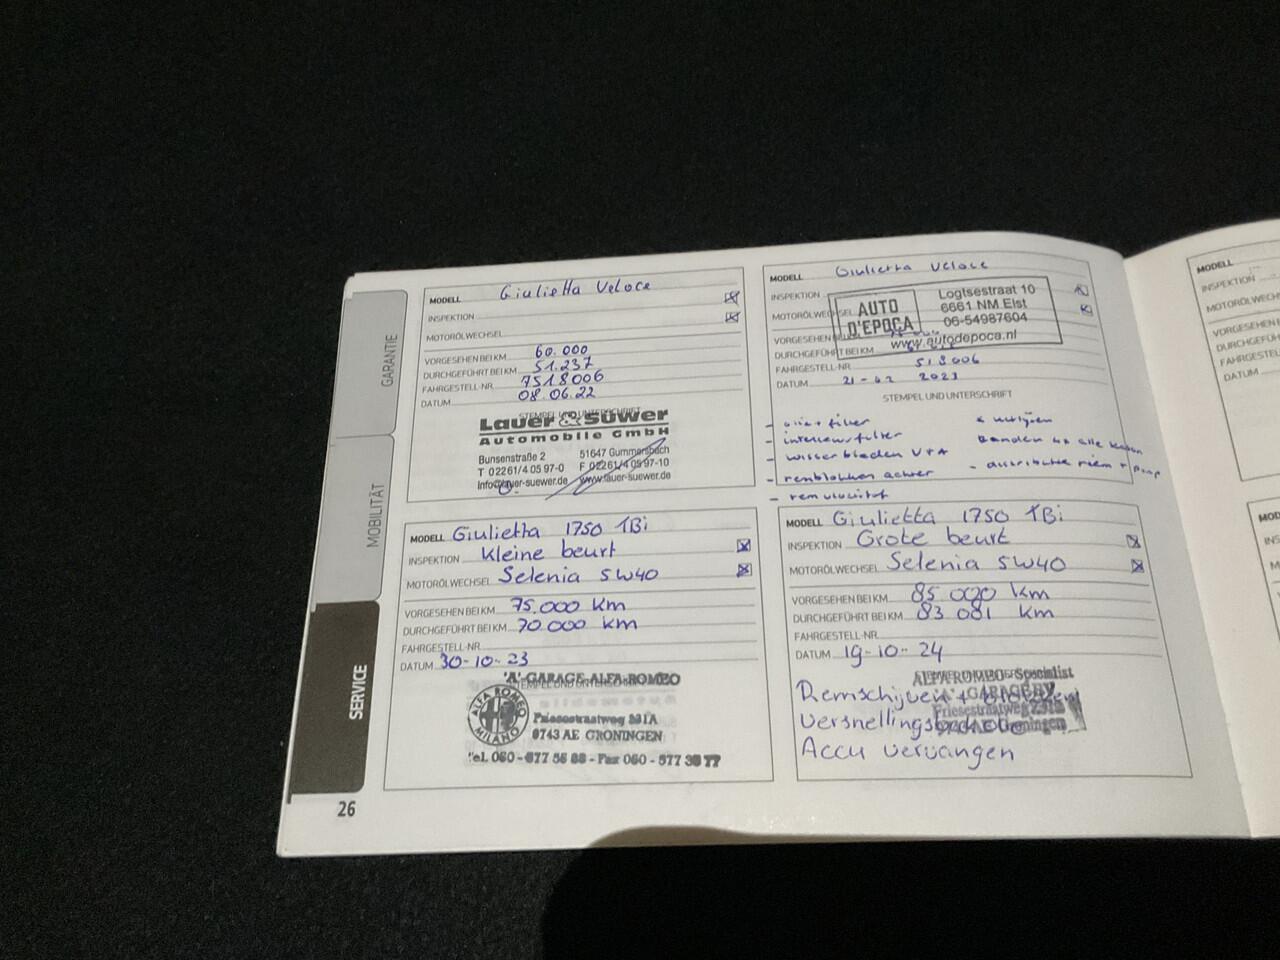 GARANTIE
MOBILITÄT
SERVICE
MODELL Giulietta Veloce
INSPEKTION
MOTORÖLWECHSEL
VORGESEHEN BEI KM 60.000
DURCHGEFÜHRT BEI KM 51.237
FAHRGESTELL-NR. 7518006
DATUM 08.06.22
STEMPEL UND UNTERSCHRIFT
Lauer & Süwer
Automobile GmbH
Bunsenstraße 2 51647 Gummersbach
T 02261/4 05 97-0 F 02261/4 05 97-10
info@lauer-suewer.de www.lauer-suewer.de
MODELL Giulietta Veloce
INSPEKTION
MOTORÖLWECHSEL
AUTO
D'EPOCA
Logtsestraat 10
6661 NM Elst
06-54987604
www.autodepoca.nl
VORGESEHEN
DURCHGEFÜHRT BEI KM
FAHRGESTELL-NR. 518006
DATUM 21-02 2023
STEMPEL UND UNTERSCHRIFT
- olie + filter
- interieurfilter
- wisserbladen V+A
- remblokken achter
- remvloeistof
- distributie riem +
MODELL Giulietta 1750 TBi
INSPEKTION Kleine beurt
MOTORÖLWECHSEL Selenia 5W40
VORGESEHEN BEI KM 75.000 km
DURCHGEFÜHRT BEI KM 70.000 km
FAHRGESTELL-NR.
DATUM 30-10-23
STEMPEL UND UNTERSCHRIFT
'A'-GARAGE-ALFA-ROMEO
ALFA ROMEO
MILANO
Friesestraatweg 231A
9743 AE GRONINGEN
Tel. 050 - 577 55 88 - Fax 050 - 577 38 77
MODELL Giulietta 1750 TBi
INSPEKTION Grote beurt
MOTORÖLWECHSEL Selenia 5W40
VORGESEHEN BEI KM 85 000 km
DURCHGEFÜHRT BEI KM 83 081 km
FAHRGESTELL-NR.
DATUM 19-10-24
ALFA ROMEO Specialist
Remschijven +
Versnellingsbak
Accu vervangen
26
MODELL
INSPEKTION
MOTORÖLWECHSEL
VORGESEHEN
DURCHGEFÜHRT
FAHRGESTELL
DATUM